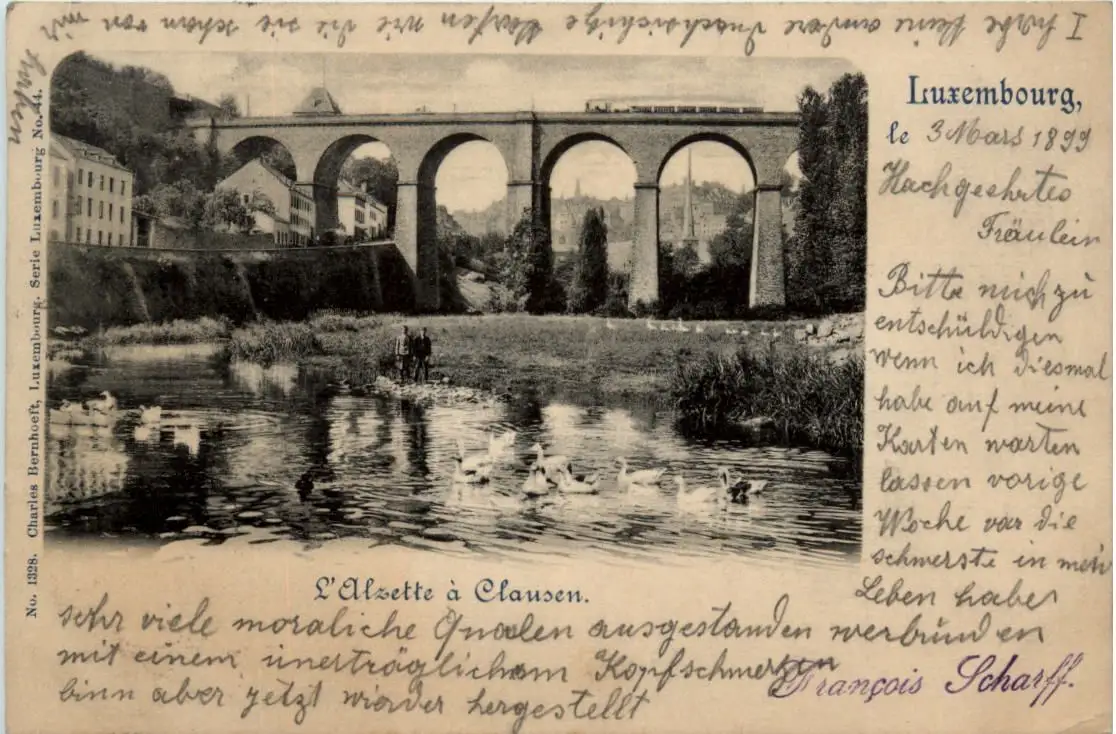 Luxembourg,
le 3 Mars 1899
Hachgeehrtes
Fräulein
Bitte mich zü
entschüldigen
wenn ich diesmal
habe auf meine
Karten warten
lassen vorige
Woche var die
schwerste in mein
Leben haber
sehr viele moraliche Qualen ausgestanden werbünden
mit einem ünerträglichem Kopfschmerzen
binn aber jetzt wieder hergestellt
François Scharff.
I habe keine andere
die sie schon von mir
L'Alzette à Clausen.
No. 1328. Charles Bernhoeft, Luxembourg. Serie Luxembourg No. 44.